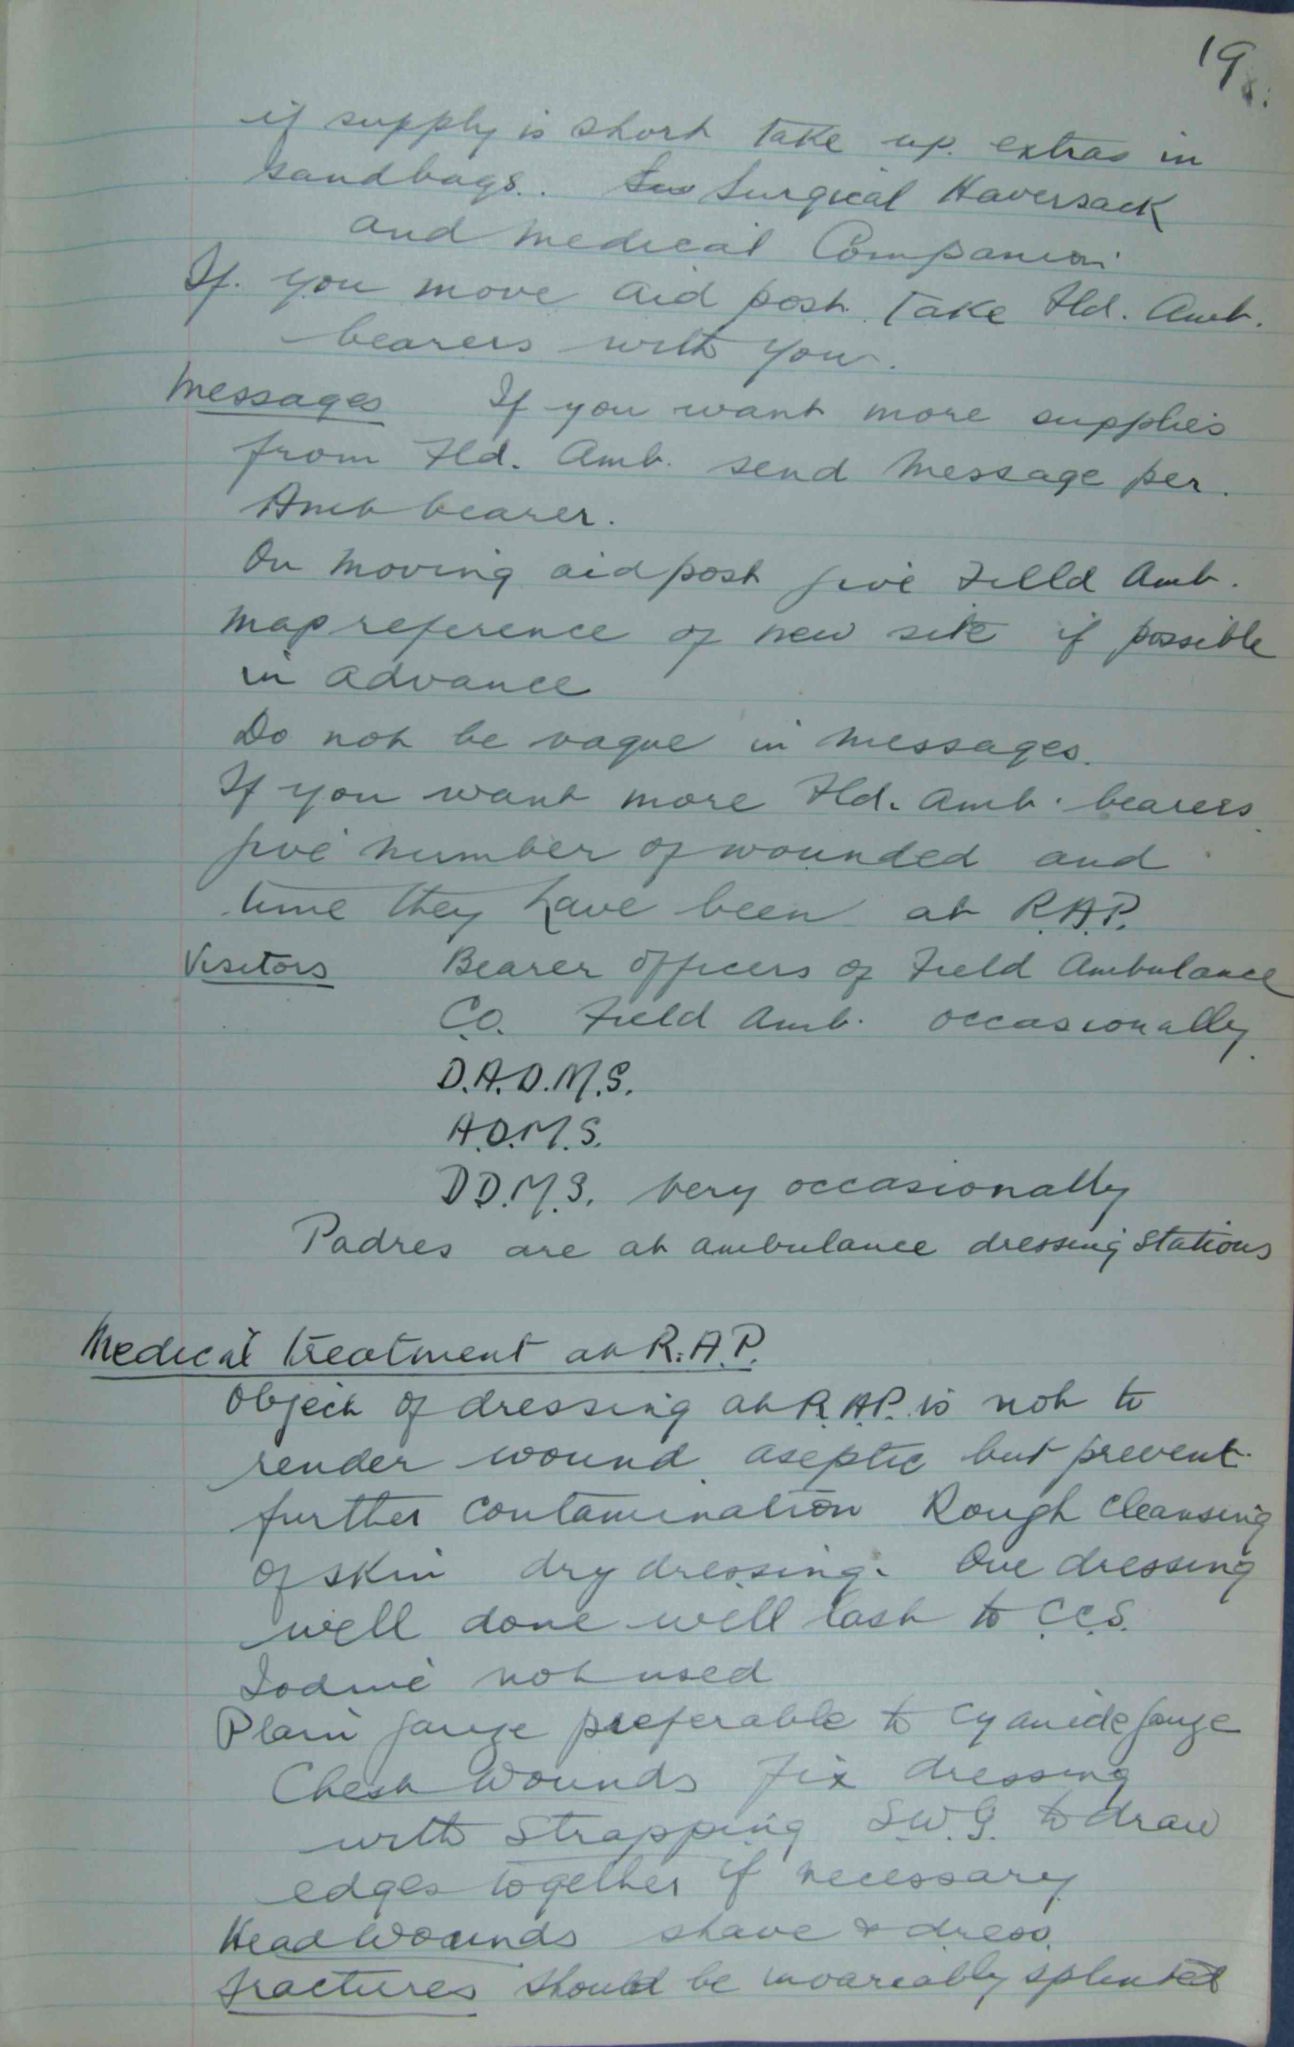 19.
if supply is short take up extras in
sandbags. Surgical Haversack
and medical Companion
If you move aid post take Fld. Amb.
bearers with you.
Messages If you want more supplies
from Fld. Amb. send message per.
Amb bearer.
On moving aid post give Field Amb.
map reference of new site if possible
in advance
Do not be vague in messages.
If you want more Fld. Amb. bearers
give number of wounded and
time they have been at R.A.P.
Visitors Bearer officers of Field Ambulance
C.O. Field Amb. occasionally.
D.A.D.M.S.
A.D.M.S.
D D.M.S. very occasionally
Padres are at ambulance dressing stations
Medical treatment at R.A.P.
Object of dressing at R.A.P. is not to
render wound aseptic but prevent
further contamination Rough cleansing
of skin dry dressing. One dressing
well done will last to C.C.S.
Iodine not used
Plain gauze preferable to cyanide gauze
Chest wounds fix dressing
with strapping S.W.G. to draw
edges together if necessary
Head Wounds shave & dress.
fractures should be invariably splinted